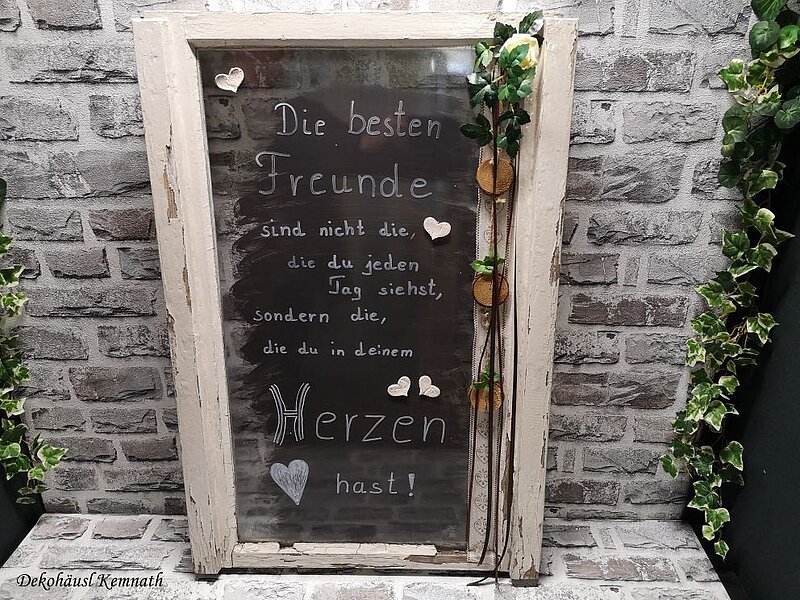 Die besten
Freunde
sind nicht die,
die du jeden
Tag siehst,
sondern die,
die du in deinem
Herzen
hast!
Dekohäusl Kemnath